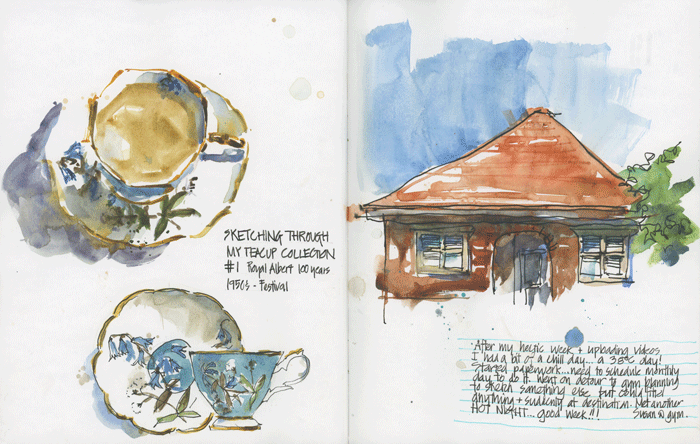 SKETCHING THROUGH
MY TEACUP COLLECTION
#1 Royal Albert 100 years
1950s - Festival
After my hectic week + uploading videos
I had a bit of a chill day... a 38°C day!
Started paperwork... need to schedule monthly
day to do it. Went on detour to gym planning
to sketch something else but couldn't find
anything + suddenly at destination. Met another
HOT NIGHT... good week!!! Susan @ gym.